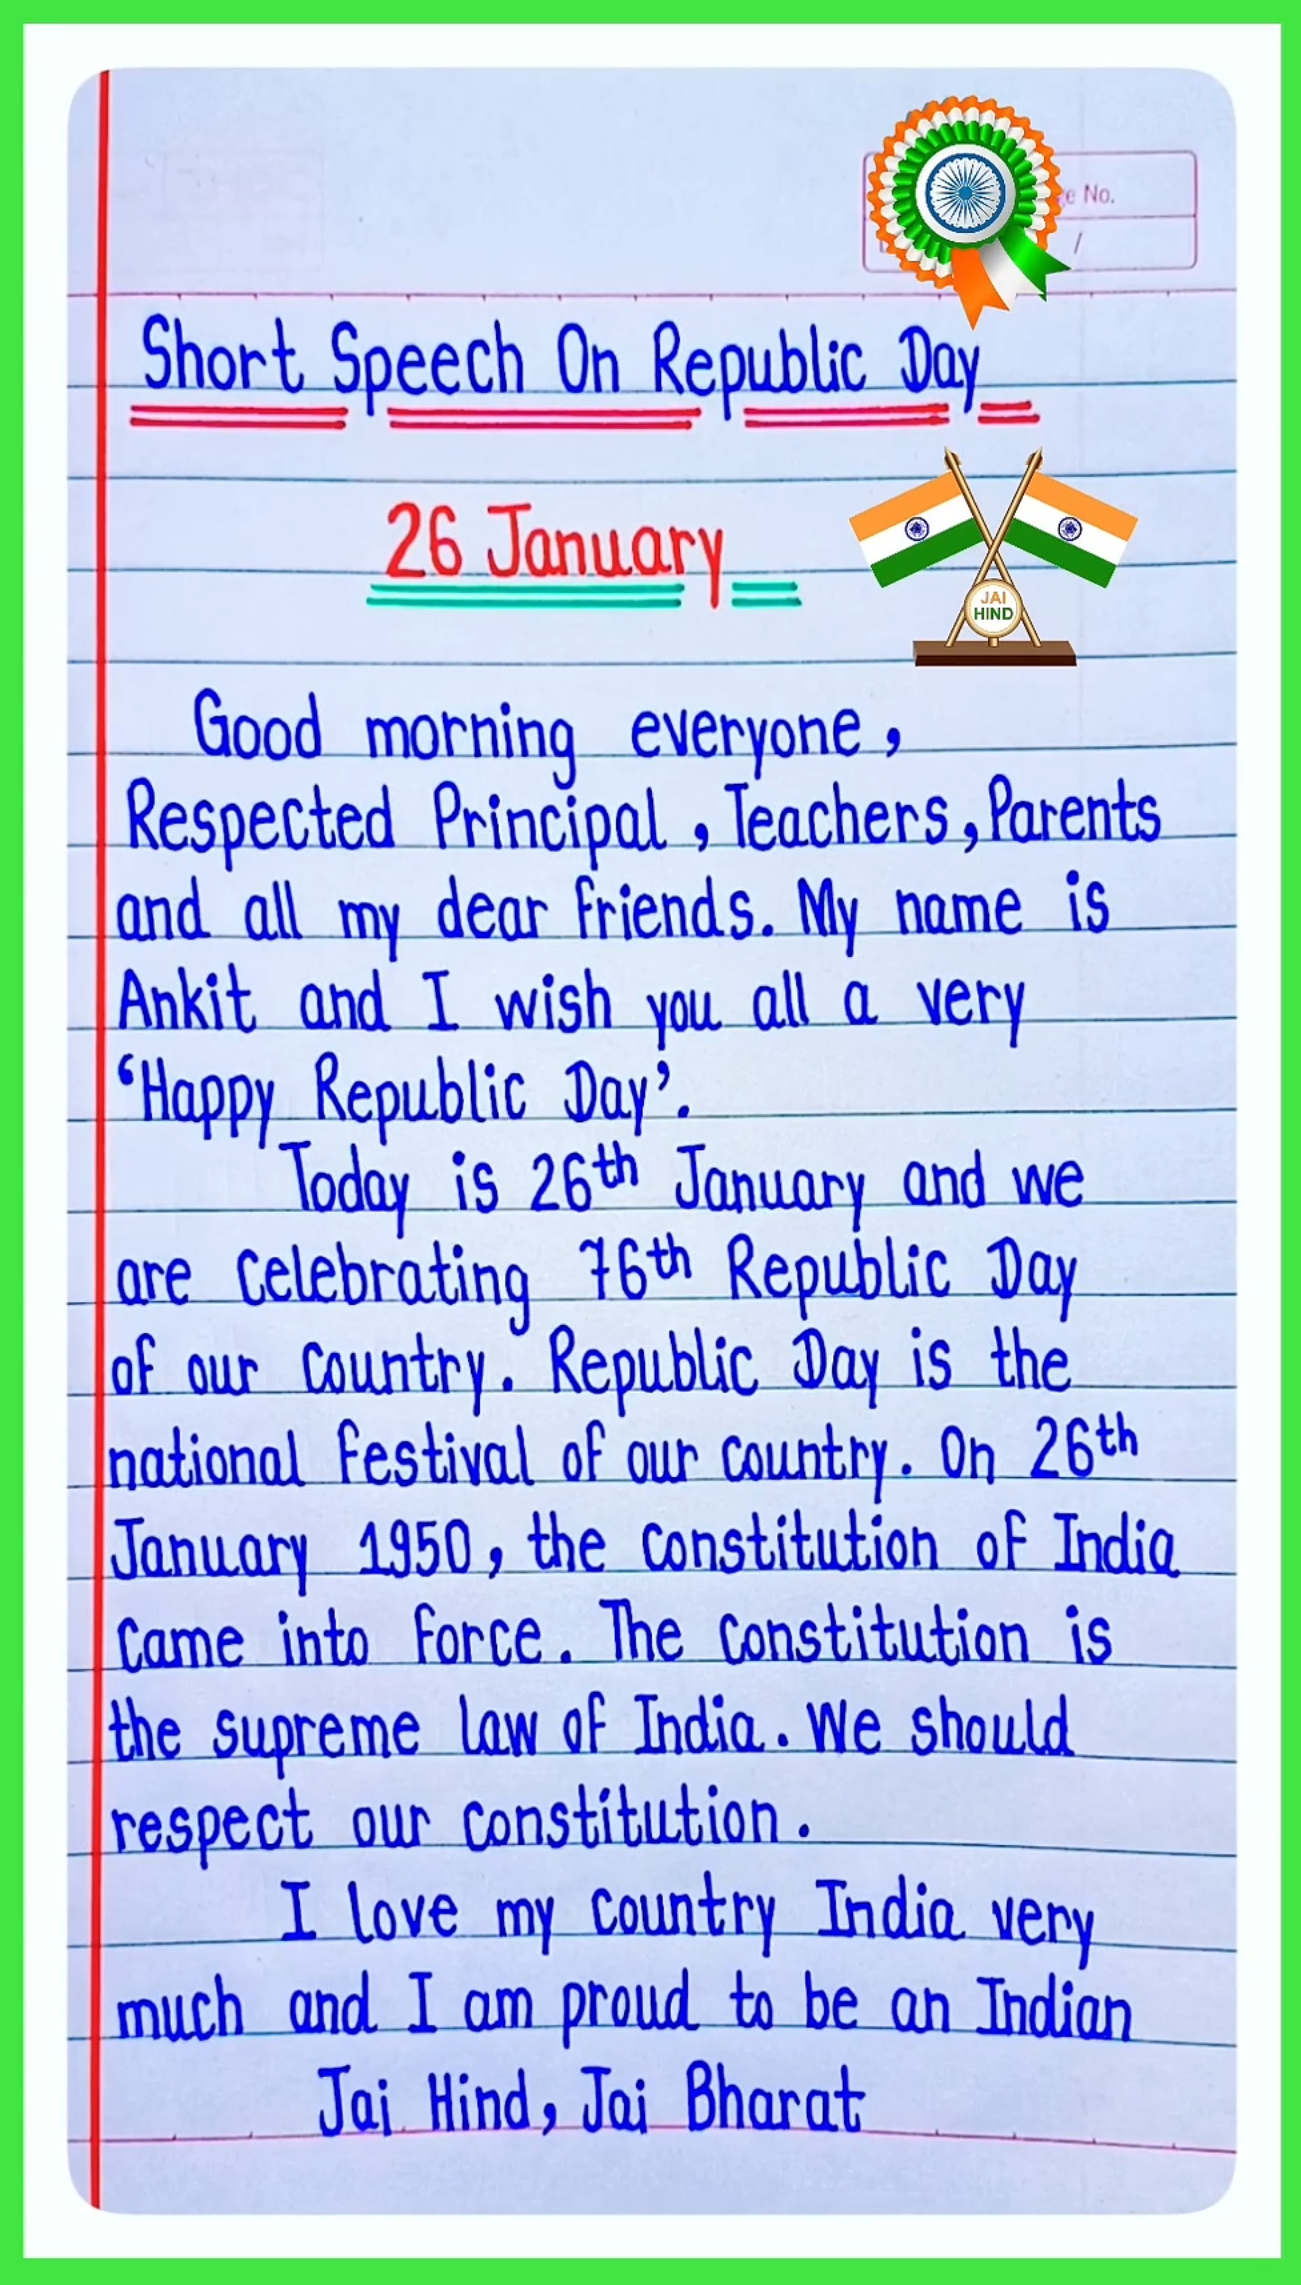 e No.
/
Short Speech On Republic Day
26 January
JAI
HIND
Good morning everyone,
Respected Principal, Teachers, Parents
and all my dear friends. My name is
Ankit and I wish you all a very
‘Happy Republic Day’.
Today is 26th January and we
are celebrating 76th Republic Day
of our country. Republic Day is the
national festival of our country. On 26th
January 1950, the constitution of India
came into force. The constitution is
the supreme law of India. We should
respect our constitution.
I love my country India very
much and I am proud to be an Indian
Jai Hind, Jai Bharat